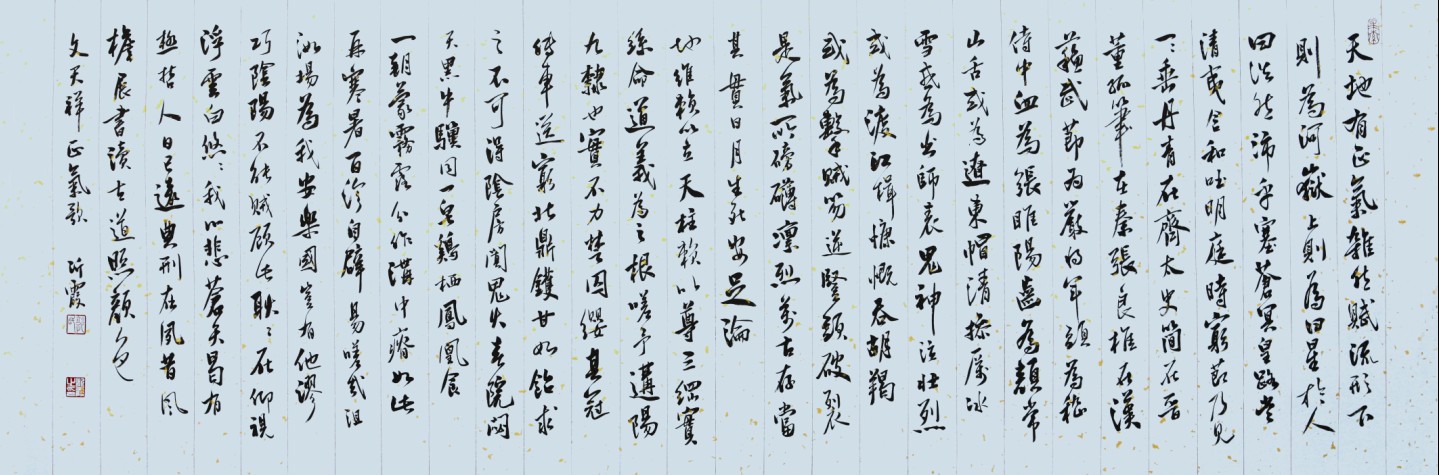 天地有正氣雜然賦流形下
則為河嶽上則為日星於人
曰浩然沛乎塞蒼冥皇路當
清夷含和吐明庭時窮節乃見
一々垂丹青在齊太史簡在晉
董狐筆在秦張良椎在漢
蘇武節為嚴將軍頭為嵇
侍中血為張睢陽齒為顏常
山舌或為遼東帽清操厲冰
雪或為出師表鬼神泣壯烈
或為渡江楫慷慨吞胡羯
或為擊賊笏逆豎頭破裂
是氣所磅礴凜烈萬古存當
其貫日月生死安足論
地維賴以立天柱賴以尊三綱實
繫命道義為之根嗟予遘陽
九隸也實不力楚囚纓其冠
傳車送窮北鼎鑊甘如飴求
之不可得陰房闃鬼火春院閟
天黑牛驥同一皂鷄栖鳳凰食
一朝蒙霧露分作溝中瘠如此
再寒暑百沴自辟易嗟哉沮
洳場為我安樂國豈有他謬
巧陰陽不能賊顧此耿々在仰視
浮雲白悠々我心悲蒼天曷有
極哲人日已遠典刑在夙昔風
檐展書讀古道照顏色
文天祥正氣歌 霞